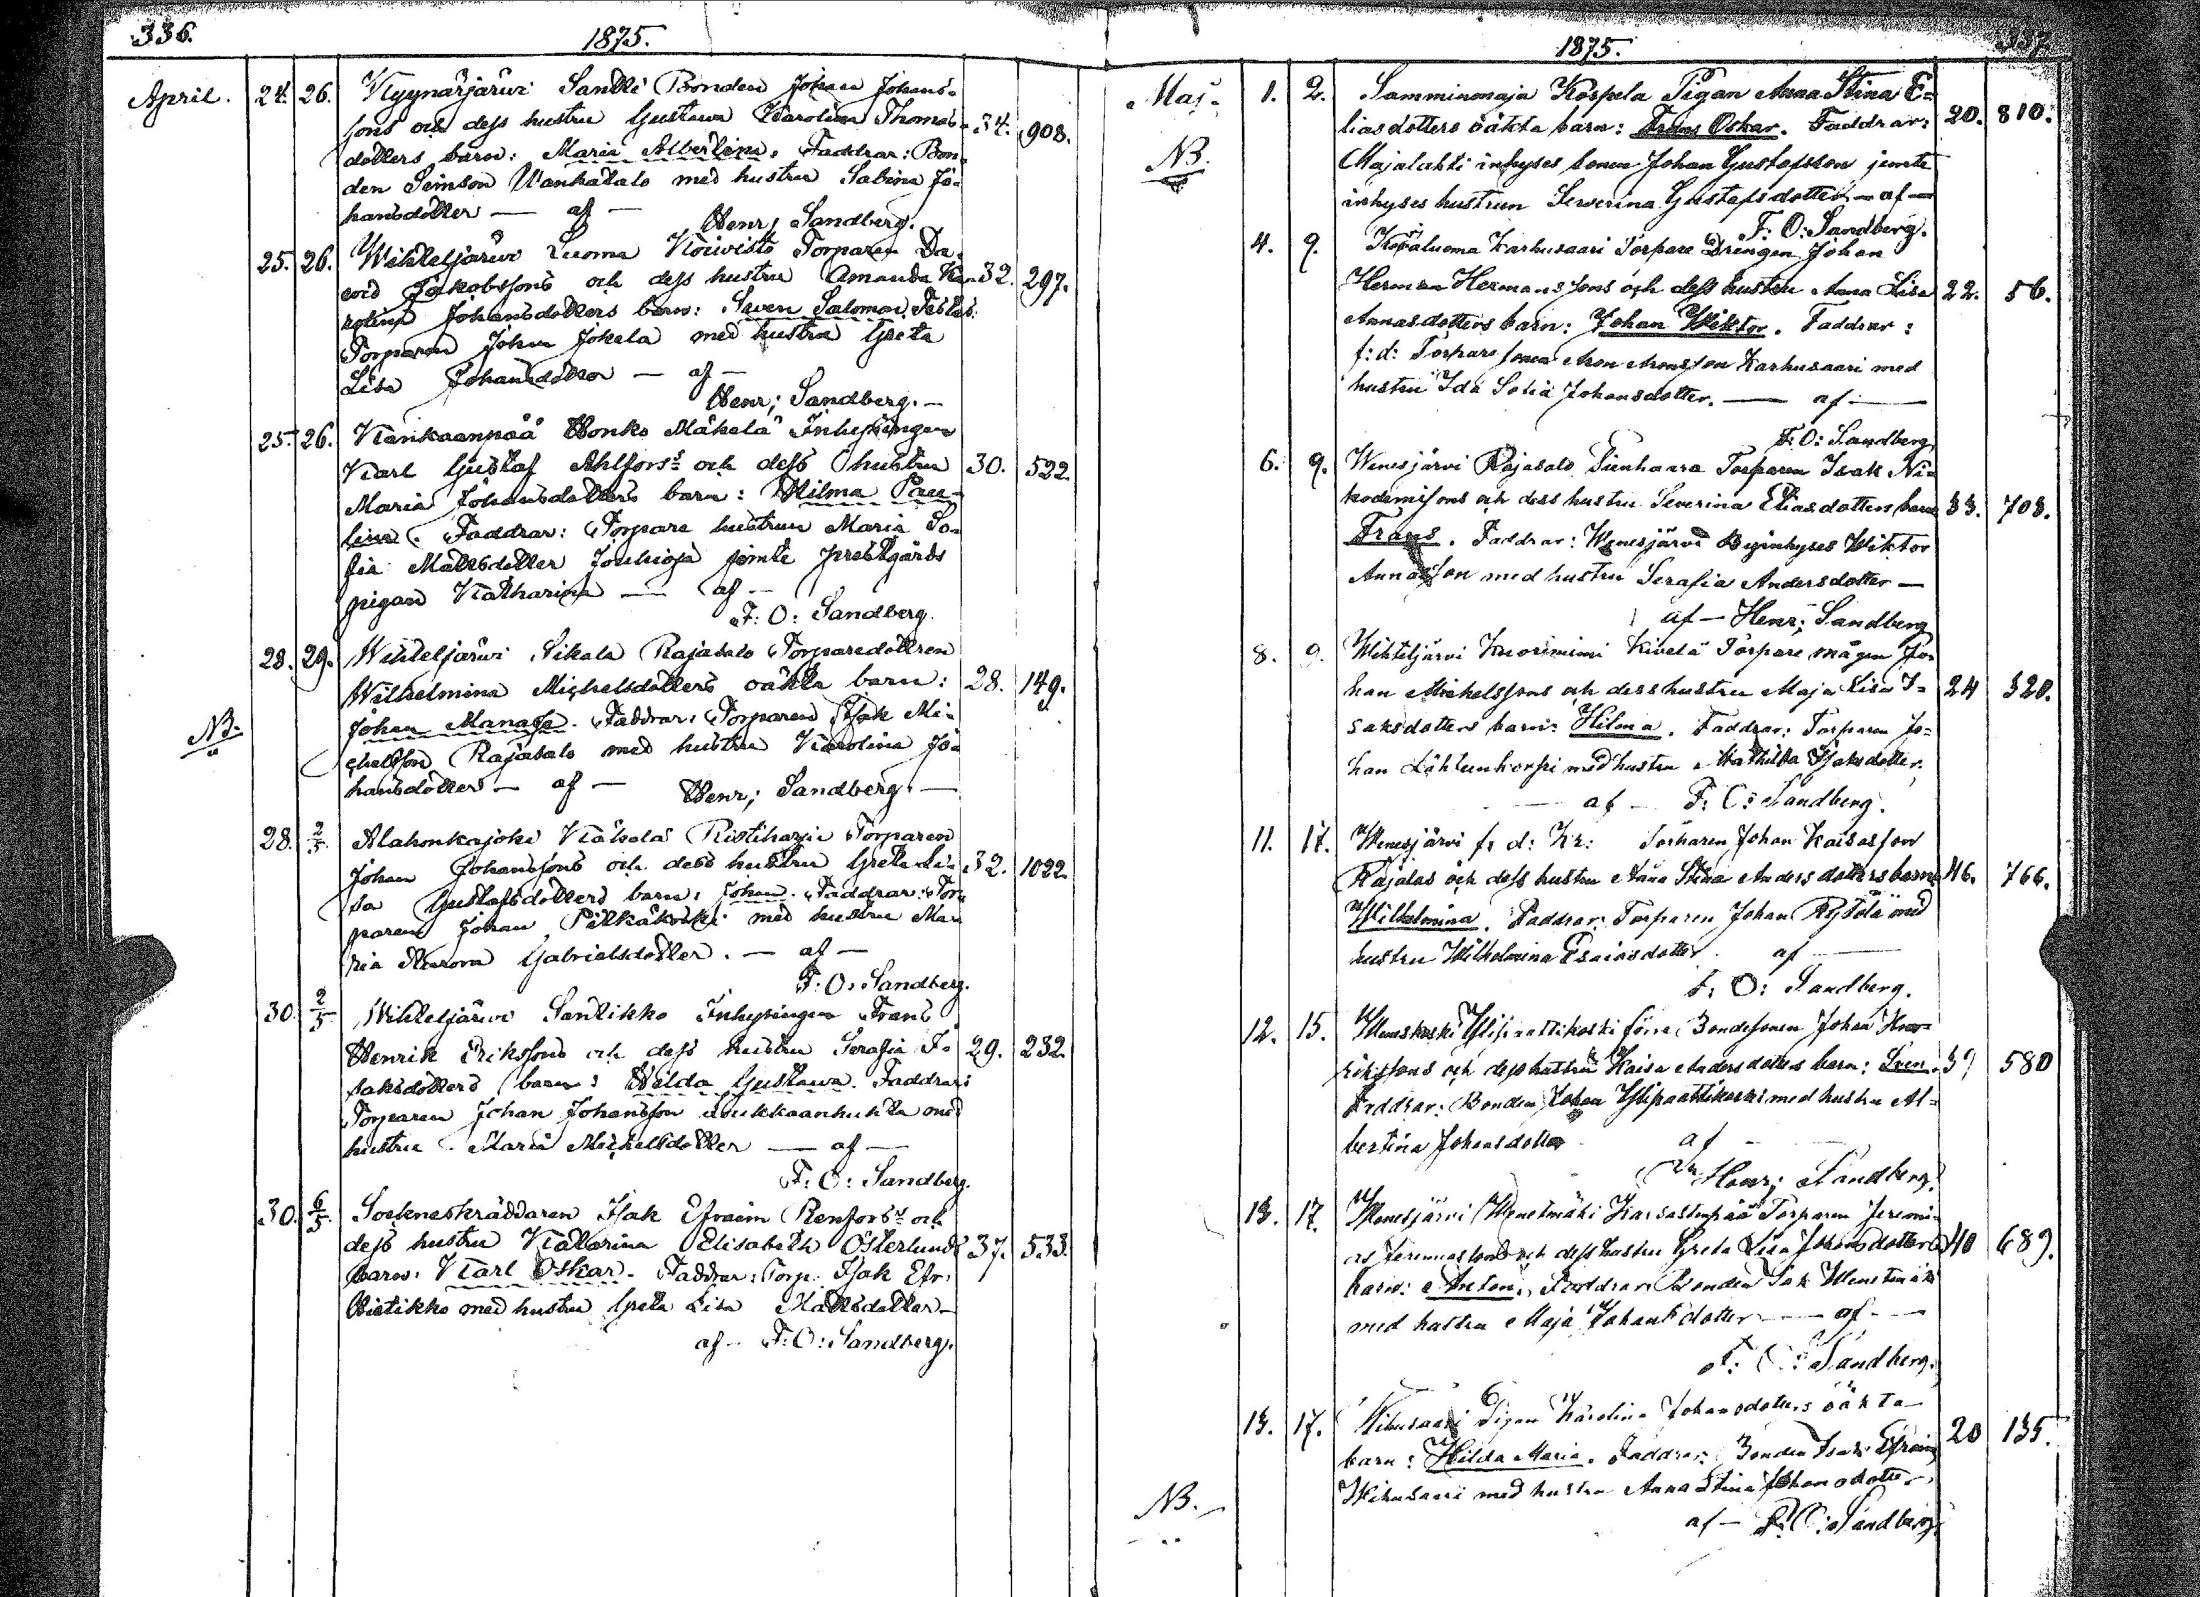 336.
1875.
April. 24. 26. Kyynärjärwi Santti Bonden Johan Johans-
sons och dess hustru Gustawa Karolina Thomas- 34. 908.
dotters barn: Maria Albertina. Faddrar: Bon-
den Simson Wanhatalo med hustru Sabina Jo-
hansdotter — af —
Henr; Sandberg.
25. 26. Wihteljärwi Luoma Koiwisto Torparen Da-
vid Jakobssons och dess hustru Amanda Ka- 32. 297.
rolina Johansdotters barn: Swen Salomon.
Torparen Johan Jokela med hustru Greta
Lisa Johansdotter — af —
Henr; Sandberg. —
25. 26. Kankaanpää Honko Mäkelä Inhysingen
Karl Gustaf Ahlfors och dess hustru 30. 522.
Maria Johansdotters barn: Hilma Pau-
lina. Faddrar: Torpare hustrun Maria So-
fia Mattsdotter Jouhioja jemte prestgårds
pigan Katharina — af —
F: O: Sandberg.
28. 29. Wihteljärwi Sikala Rajasalo Torparedottren
Wilhelmina Michelsdotters oäkta barn: 28. 149.
NB. Johan Manasse. Faddrar: Torparen Isak Mi-
chelsson Rajasalo med hustru Karolina Jo-
hansdotter — af — Henr; Sandberg. —
28. 2/5. Alahonkajoki Käkelä Ristiharju Torparen
Johan Johanssons och dess hustru Greta Li- 32. 1022.
sa Gustafsdotters barn: Johan. Faddrar: Tor-
paren Johan Pitkäkoski med hustru Ma-
ria Aurora Gabrielsdotter. — af —
F: O: Sandberg.
30. 2/5. Wihteljärwi Santikko Inhysingen Frans
Henrik Erikssons och dess hustru Serafia I- 29. 232.
saksdotters barn: Hilda Gustawa. Faddrar:
Torparen Johan Johansson med
hustru Maria Michelsdotter — af —
F: O: Sandberg.
30. 6/5. Sockneskräddaren Isak Efraim Renfors och
dess hustru Katarina Elisabeth Österlunds 37. 533.
barn: Karl Oskar. Faddrar: Torp. Isak Efr:
Wietikko med hustru Greta Lisa Mattsdotter —
af — F: O: Sandberg.
1875.
337
Maj. 1. 2. Samminmaja Kospela Pigan Anna Stina E-
liasdotters oäkta barn: Frans Oskar. Faddrar: 20. 810.
NB. Majalahti inhyses sonen Johan Gustafsson jemte
inhyses hustrun Severina Gustafsdotter — af —
F: O: Sandberg.
4. 9. Karhusaari Torpare Drengen Johan
Herman Hermanssons och dess hustru Anna Lisa 22. 56.
Annasdotters barn: Johan Wiktor. Faddrar:
f: d: Torpare sonen Karhusaari med
hustru Ida Sofia Johansdotter. — af —
F: O: Sandberg
6. 9. Wenesjärvi Rajasalo Torparen Isak Ni-
kodemisons och dess hustru Severina Eliasdotters barn 33. 708.
Frans. Faddrar: Wenesjärvi Byinhyses Wiktor
Annasson med hustru Serafia Andersdotter —
af — Henr; Sandberg
8. 9. Wihteljärvi Knorimimi Kivelä Torpare mågen Jo-
han Michelssons och dess hustru Maja Lisa I- 24 320.
saksdotters barn: Hilma. Faddrar: Torparen Jo-
han Lähteenkorpi med hustru Mathilda Isaksdotter.
— af — F: O: Sandberg.
11. 17. Wenesjärvi f: d: Kr: Torparen Johan Kaisasson
Rajalas och dess hustru Anna Stina Andersdotters barn 46. 766.
Wilhelmina. Faddrar: Torparen Johan med
hustru Wilhelmina Esaiasdotter af —
F: O: Sandberg.
12. 15. Weneskoski Ylipaattikoski förra Bondesonen Johan Hen-
rikssons och dess hustru Kaisa Andersdotters barn: Sven. 580
Faddrar: Bonden Johan Ylipaattikoski med hustru Al-
bertina Johansdotter af
Henr; Sandberg.
13. 17. Wenesjärvi Wenetmäki Torparen Jeremi-
as Jeremiassons och dess hustru Greta Lisa Johansdotters 40 689.
barn: Anton. Faddrar: Bonden Isak Wenetmäki
med hustru Maja Johansdotter — af —
F: O: Sandberg.
13. 17. Wihusaari Pigan Karolina Johansdotters oäkta 20 135.
barn: Hilda Maria. Faddrar: Bonden Isak Efraim
Wihusaari med hustru Anna Stina Johansdotter.
NB. af — F: O: Sandberg.